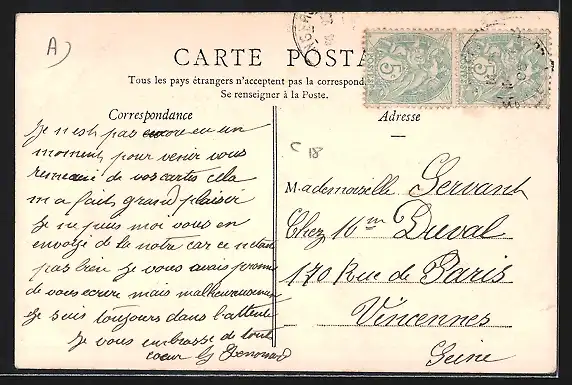 A)
CARTE POSTA
Tous les pays étrangers n'acceptent pas la correspond
Se renseigner à la Poste.
Correspondance
Je n'est pas encore eu un
moment pour venir vous
remercier de vos cartes cela
m a fait grand plaisir
Je ne puis moi vous en
envoyé de la notre car ce n etait
pas bien Je vous avais promi
de vous ecrire mais malheureusement
Je suis toujours dans l'attente
Je vous embrasse de tout
coeur
Adresse
C 18
Mademoiselle Servant
Chez Mme Duval
170 Rue de Paris
Vincennes
Seine